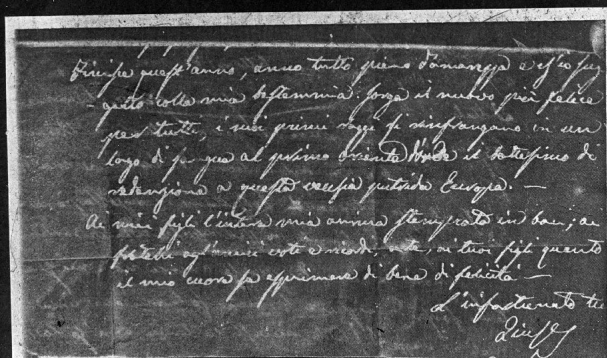 Finisce quest'anno, anno tutto pieno d'amarezza e io
colla mia bestemmia. Sorga il nuovo più felice
per tutti, i suoi primi raggi si rinfrangano in un
lago di che al primo oriente il battesimo di
redenzione a questa vecchia putrida Europa. —
Ai miei figli l'intera mia anima stemprata in baci; ai
fratelli agl'amici e a te, ai tuoi figli quanto
il mio cuore sa esprimere di bene di felicità —
L'infortunato tu